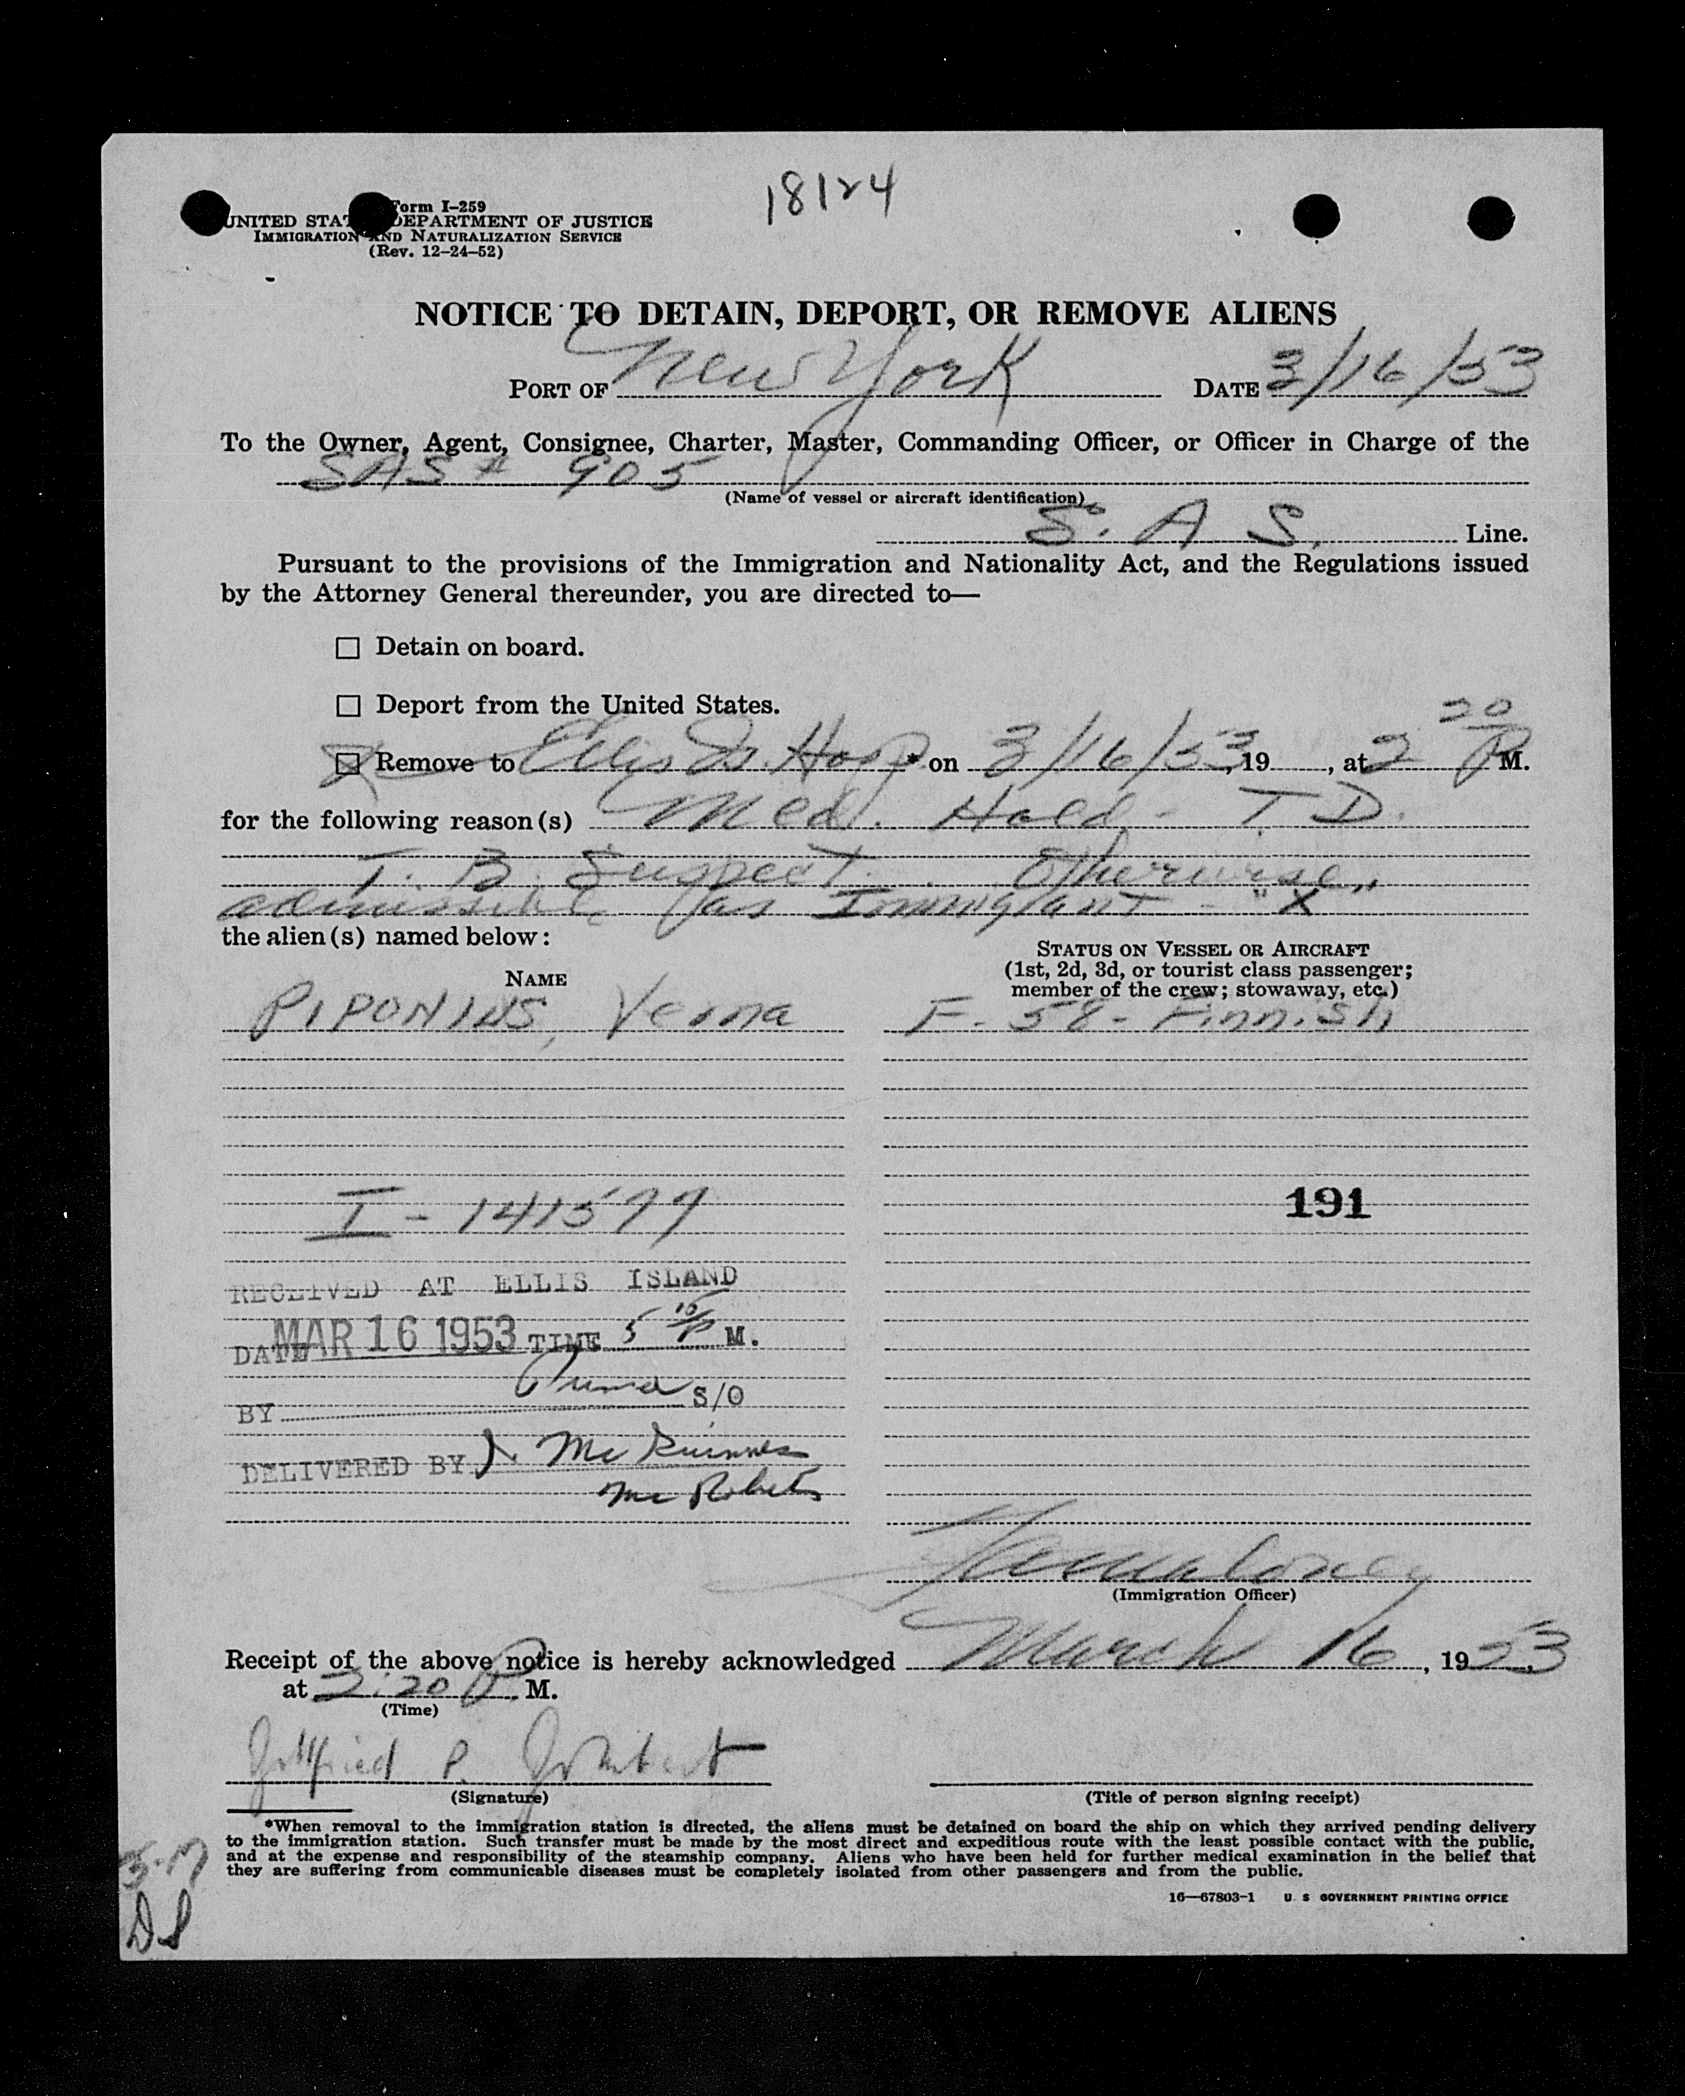 18124
Form I-259
UNITED STAT DEPARTMENT OF JUSTICE
IMMIGRATION AND NATURALIZATION SERVICE
(Rev. 12-24-52)
NOTICE TO DETAIN, DEPORT, OR REMOVE ALIENS
PORT OF New York DATE 3/16/53
To the Owner, Agent, Consignee, Charter, Master, Commanding Officer, or Officer in Charge of the
SAS # 905
(Name of vessel or aircraft identification)
S. A S. Line.
Pursuant to the provisions of the Immigration and Nationality Act, and the Regulations issued
by the Attorney General thereunder, you are directed to—
☐ Detain on board.
☐ Deport from the United States.
☒ Remove to Ellis Is. Hosp.* on 3/16/53, 19 , at 2 20 P M.
for the following reason(s) Med. Hold - T. D.
T. B. Suspect. Otherwise
admissible as Immigrant - "X"
the alien(s) named below:
NAME
STATUS ON VESSEL OR AIRCRAFT
(1st, 2d, 3d, or tourist class passenger;
member of the crew; stowaway, etc.)
PIPONIUS, Verna F. 58 - Finnish
I - 141577
191
RECEIVED AT ELLIS ISLAND
DATE MAR 16 1953 TIME 5 10 P M.
BY S/O
DELIVERED BY Mc Guinness
Mc Roberts
(Immigration Officer)
Receipt of the above notice is hereby acknowledged March 16, 1953
at 2:20 P. M.
(Time)
Gottfried P.
(Signature)
(Title of person signing receipt)
*When removal to the immigration station is directed, the aliens must be detained on board the ship on which they arrived pending delivery
to the immigration station. Such transfer must be made by the most direct and expeditious route with the least possible contact with the public,
and at the expense and responsibility of the steamship company. Aliens who have been held for further medical examination in the belief that
they are suffering from communicable diseases must be completely isolated from other passengers and from the public.
16—67803-1 U. S GOVERNMENT PRINTING OFFICE